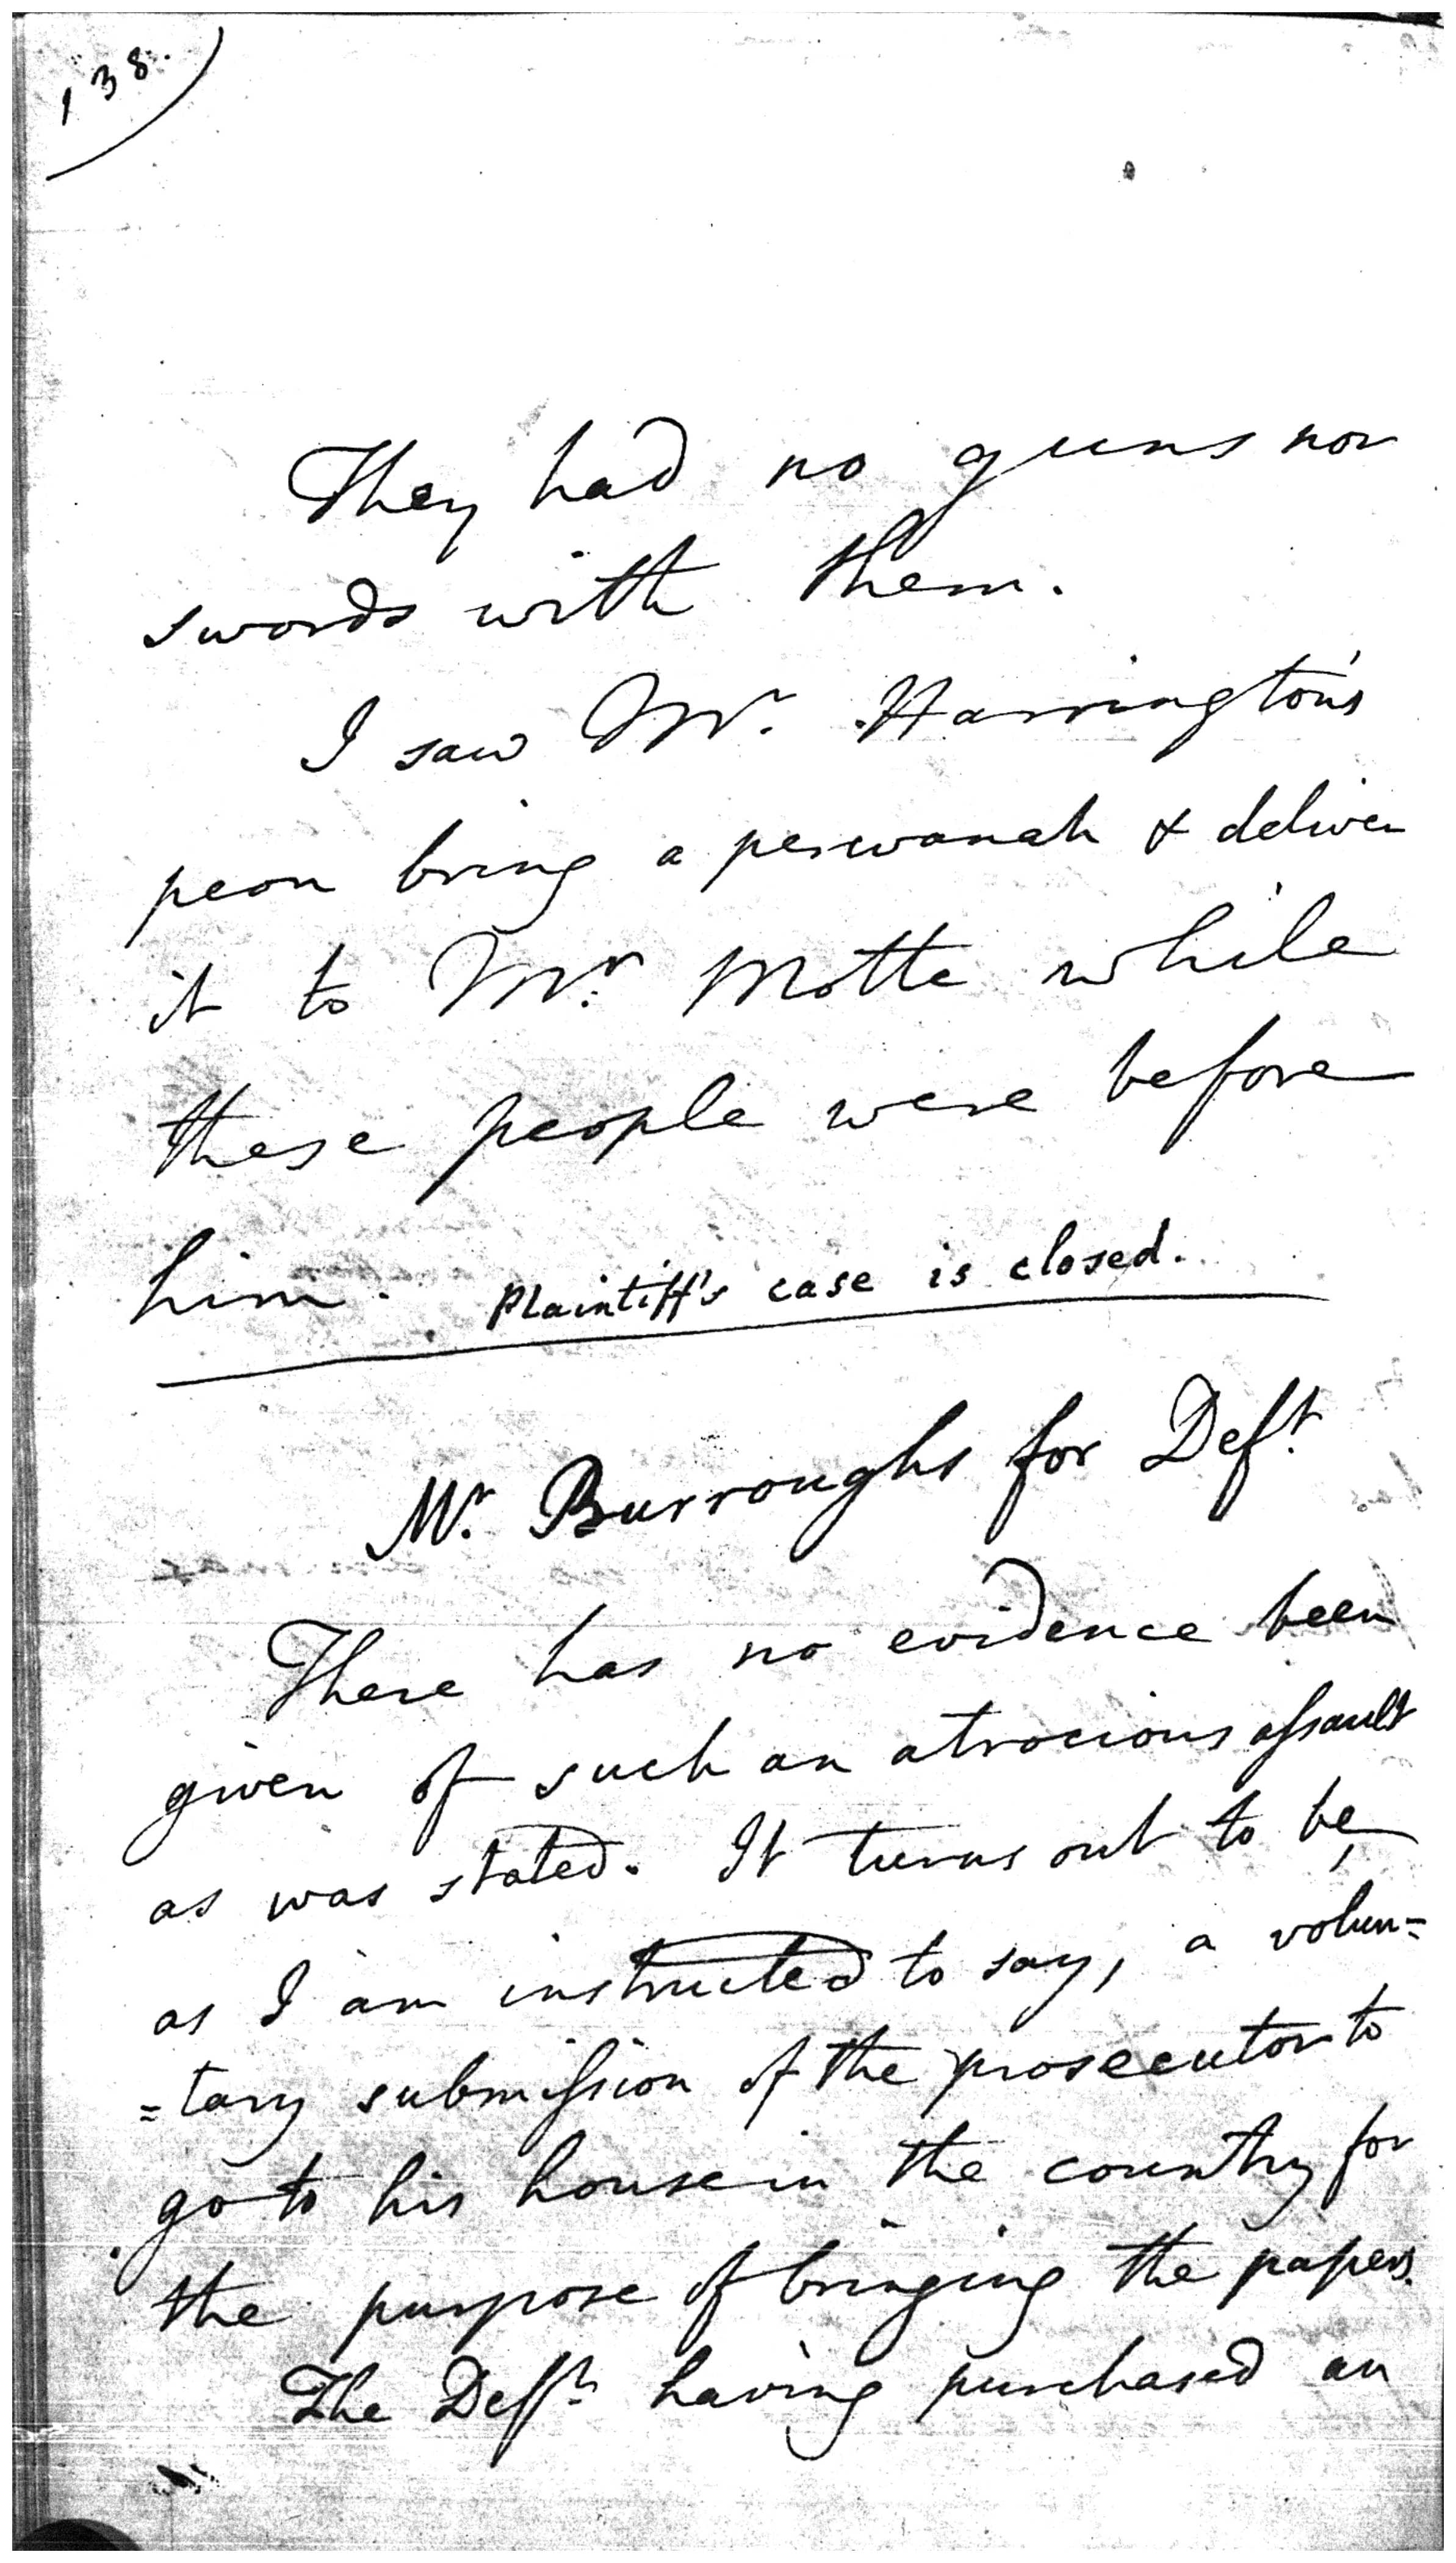 138.
They had no guns nor
swords with them.
I saw Mr. Harrington's
peon bring a perwanah & deliver
it to Mr. Motte while
these people were before
him. Plaintiff's case is closed.
Mr. Burroughs for Deft.
There has no evidence been
given of such an atrocious assault
as was stated. It turns out to be,
as I am instructed to say, a volun=
=tary submission of the prosecutor to
go to his house in the country for
the purpose of bringing the papers.
The Defft. having purchased an